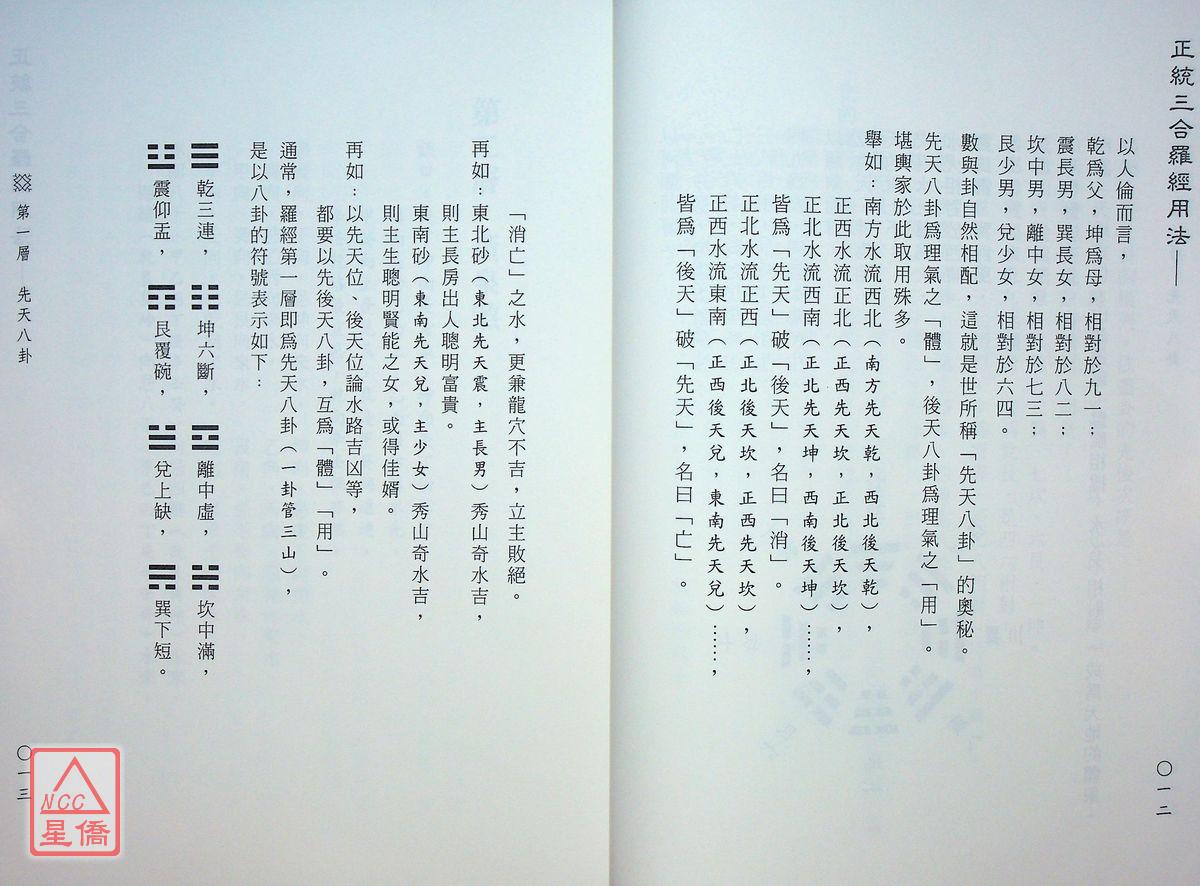 正統三合羅經用法——
以人倫而言，
乾為父，坤為母，相對於九一；
震長男，巽長女，相對於八二；
坎中男，離中女，相對於七三；
艮少男，兌少女，相對於六四。
數與卦自然相配，這就是世所稱「先天八卦」的奧秘。
先天八卦為理氣之「體」，後天八卦為理氣之「用」。
堪輿家於此取用殊多。
舉如：南方水流西北（南方先天乾，西北後天乾），
正西水流正北（正西先天坎，正北後天坎），
正北水流西南（正北先天坤，西南後天坤）……，
皆為「先天」破「後天」，名曰「消」。
正北水流正西（正北後天坎，正西先天坎），
正西水流東南（正西後天兌，東南先天兌）……，
皆為「後天」破「先天」，名曰「亡」。
〇一二
「消亡」之水，更兼龍穴不吉，立主敗絕。
再如：東北砂（東北先天震，主長男）秀山奇水吉，
則主長房出人聰明富貴。
東南砂（東南先天兌，主少女）秀山奇水吉，
則主生聰明賢能之女，或得佳婿。
再如：以先天位、後天位論水路吉凶等，
都要以先後天八卦，互為「體」「用」。
通常，羅經第一層即為先天八卦（一卦管三山），
是以八卦的符號表示如下：
☰乾三連，☷坤六斷，☲離中虛，☵坎中滿，
☳震仰盂，☶艮覆碗，☱兌上缺，☴巽下短。
第一層——先天八卦
〇一三
NCC
星僑